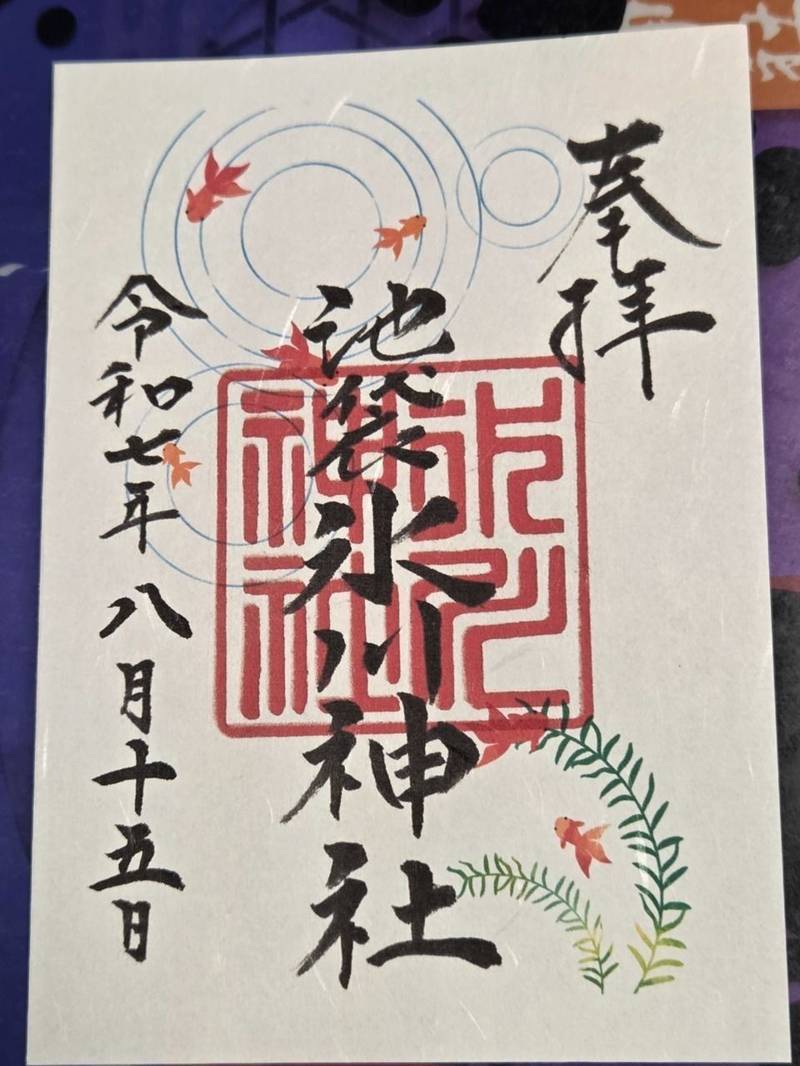 奉拝
池袋氷川神社
氷川神社
令和七年八月十五日